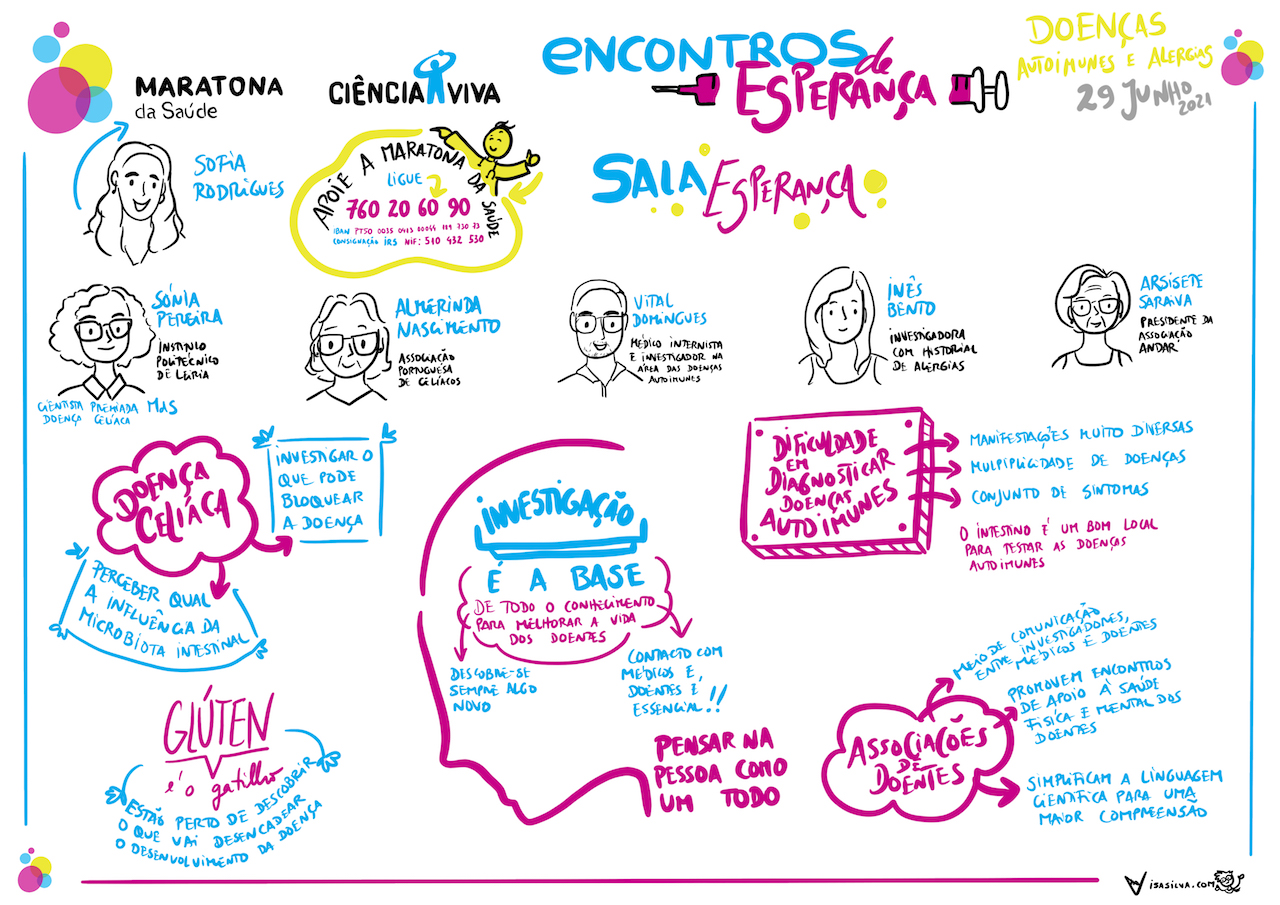 MARATONA
da Saúde
CIÊNCIA VIVA
ENCONTROS de
ESPERANÇA
DOENÇAS
AUTOIMUNES E ALERGIAS
29 JUNHO
2021
SOFIA
RODRIGUES
APOIE A MARATONA DA SAÚDE
LIGUE
760 20 60 90
CONSIGNAÇÃO IRS NIF: 510 432 530
SALA ESPERANÇA
SÓNIA
PEREIRA
INSTITUTO
POLITÉCNICO
DE LEIRIA
CIENTISTA PREMIADA MdS
DOENÇA CELÍACA
ALMERINDA
NASCIMENTO
ASSOCIAÇÃO
PORTUGUESA
DE CELÍACOS
VITAL
DOMINGUES
MÉDICO INTERNISTA
E INVESTIGADOR NA
ÁREA DAS DOENÇAS
AUTOIMUNES
INÊS
BENTO
INVESTIGADORA
COM HISTORIAL
DE ALERGIAS
ARSISETE
SARAIVA
PRESIDENTE DA
ASSOCIAÇÃO
ANDAR
DOENÇA
CELÍACA
INVESTIGAR O
QUE PODE
BLOQUEAR
A DOENÇA
PERCEBER QUAL
A INFLUÊNCIA DA
MICROBIOTA INTESTINAL
GLÚTEN
é o gatilho
ESTÃO PERTO DE DESCOBRIR
O QUE VAI DESENCADEAR
O DESENVOLVIMENTO DA DOENÇA
INVESTIGAÇÃO
É A BASE
DE TODO O CONHECIMENTO
PARA MELHORAR A VIDA
DOS DOENTES
DESCOBRE-SE
SEMPRE ALGO
NOVO
CONTACTO COM
MÉDICOS E,
DOENTES É
ESSENCIAL!!
PENSAR NA
PESSOA COMO
UM TODO
DIFICULDADE
EM
DIAGNOSTICAR
DOENÇAS
AUTOIMUNES
MANIFESTAÇÕES MUITO DIVERSAS
MULPIPLICIDADE DE DOENÇAS
CONJUNTO DE SINTOMAS
O INTESTINO É UM BOM LOCAL
PARA TESTAR AS DOENÇAS
AUTOIMUNES
ASSOCIAÇÕES
DE
DOENTES
MEIO DE COMUNICAÇÃO
ENTRE INVESTIGADORES,
MÉDICOS E DOENTES
PROMOVEM ENCONTROS
DE APOIO À SAÚDE
FISÍCA E MENTAL DOS
DOENTES
SIMPLIFICAM A LINGUAGEM
CIENTÍFICA PARA UMA
MAIOR COMPREENSÃO
ISASILVA.COM